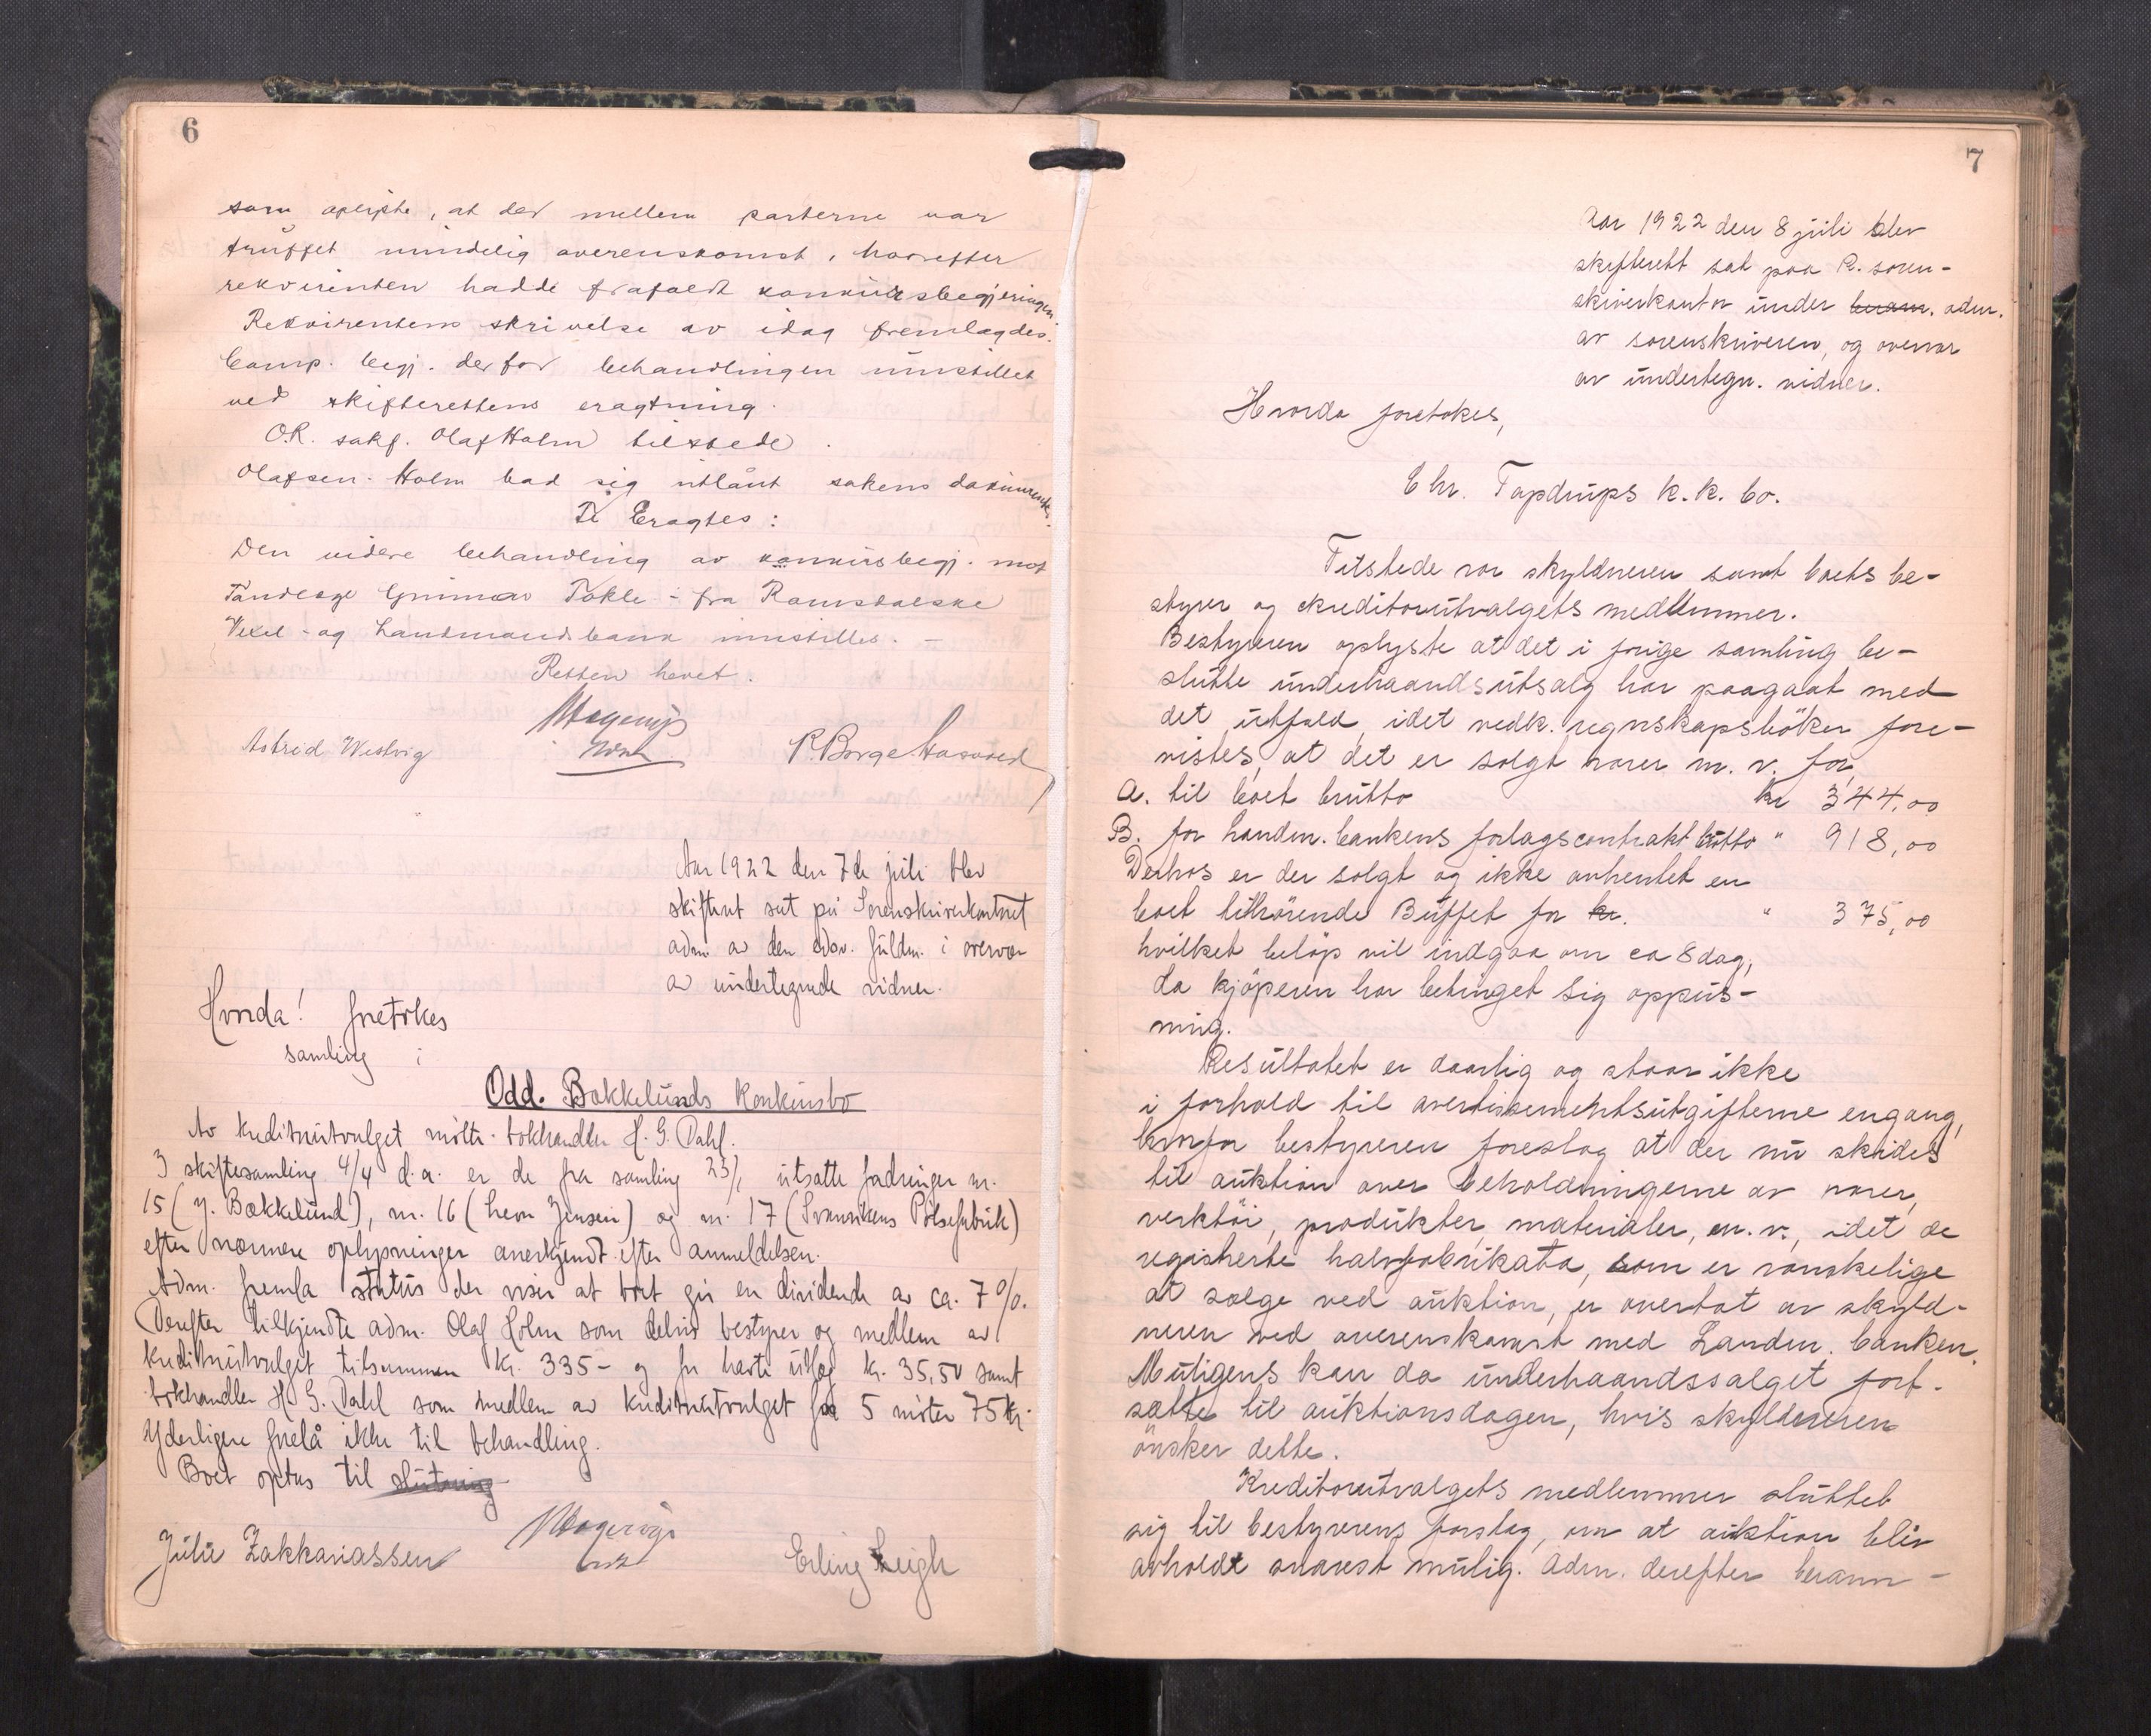 6
som oplyste, at der mellem parterne var
truffet mindelig overenskomst, hvorefter
rekvirenten hadde frafaldt konkursbegjeringen.
Rekvirentens skrivelse av idag fremlagdes.
Comp. begj. derfor behandlingen indstillet
ved skifterettens eragtning.
O.R. sakf. Olaf Holm tilstede.
Olafsen-Holm bad sig utlånt sakens dokumenter.
Eragtes:
Den videre behandling av konkursbegj. mot
Tandlæge Gunnar Tokle - fra Romsdalske
Vexel- og Landmandsbank indstilles. -
Retten hevet.
Astrid Westvig
P. Borge Hasvold
Aar 1922 den 7de juli blev
skifteret sat på Sorenskriverkontoret
adm. av den edsv. fuldm. i overvær
av undertegnede vidner.
Hvorda! foretokes
samling i
Odd. Bakkelunds Konkursbo
Av kreditorutvalget møtte bokhandler H. G. Dahl.
I skiftesamling 4/4 d.a. er de fra samling 23/1 utsatte fordringer nr.
15 (J. Bakkelund), nr. 16 (Leon Jensen) og nr. 17 (Svansikens Pølsefabrik)
efter nærmere oplysninger anerkjendt efter anmeldelsen.
Adm. fremla status der viser at boet gir en dividende av ca. 7%.
Derefter tilkjendte adm. Olaf Holm som delvis bestyrer og medlem av
kreditorutvalget tilsammen kr. 335- og for havte utlæg kr. 35,50 samt
bokhandler H. G. Dahl som medlem av kreditorutvalget for 5 møter 75 kr.
Yderligere forelå ikke til behandling.
Boet optas til slutning
Julie Zakkariassen
Erling Leigh
7
Aar 1922 den 8 juli blev
skifterett sat paa R. soren-
skriverkontor under beram. adm.
av sorenskriveren, og overvær
av undertegn. vidner.
Hvorda foretokes,
Chr. Tapdrups k.k. bo.
Tilstede var skyldneren samt boets be-
styrer og kreditorutvalgets medlemmer.
Bestyreren oplyste at det i forige samling be-
sluttte underhaandsutsalg har paagaat med
det utfald, idet vedk. regnskapsböker fore-
vistes, at det er solgt varer m. v. for
A. til boet brutto kr 344,00
B. for Landm. bankens forlagscontrakt brutto " 918,00
Derhos er der solgt og ikke avhentet en
boet tilhørende Buffet for kr. " 375,00
hvilket beløp vil indgaa om ca 8 dag,
da kjöperen har betinget sig oppus-
ning.
Resultatet er daarlig og staar ikke
i forhold til avertissementsutgifterne engang,
hvorfor bestyreren foreslog at der nu skrides
til auktion over beholdningerne av varer,
verktöi, produkter, materialer, m. v., idet de
registrerte halvfabrikata, som er vanskelige
at sælge ved auktion, er overtat av skyld-
neren ved overenskomst med Landm. banken.
Muligens kan da underhaandssalget fort-
sætte til auktionsdagen, hvis skyldneren
önsker dette.
Kreditorutvalgets medlemmer sluttet
sig til bestyrerens forslag, om at auktion blir
avholdt snarest mulig. Adm. derefter beram-